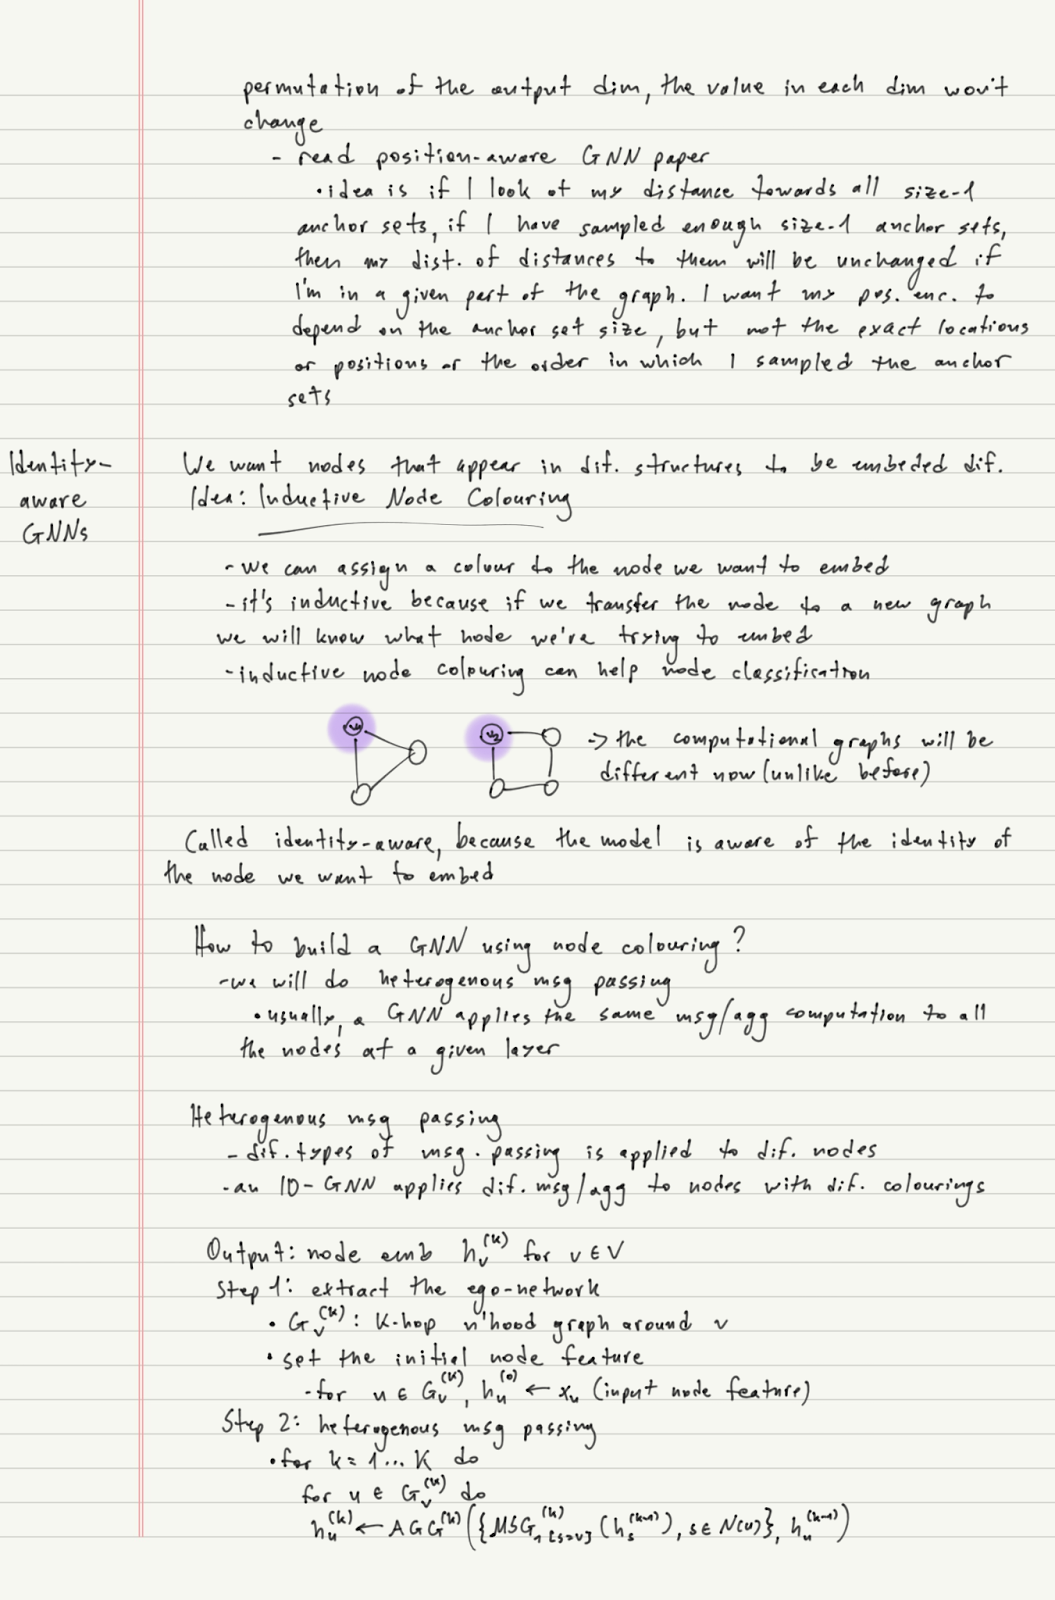 permutation of the output dim, the value in each dim won't
change
- read position-aware GNN paper
• idea is if I look at my distance towards all size-1
anchor sets, if I have sampled enough size-1 anchor sets,
then my dist. of distances to them will be unchanged if
I'm in a given part of the graph. I want my pos. enc. to
depend on the anchor set size, but not the exact locations
or positions or the order in which I sampled the anchor
sets
Identity-
aware
GNNs
We want nodes that appear in dif. structures to be embeded dif.
Idea: Inductive Node Colouring
- we can assign a colour to the node we want to embed
- it's inductive because if we transfer the node to a new graph
we will know what node we're trying to embed
- inductive node colouring can help node classification
v₁ v₂ -> the computational graphs will be
different now (unlike before)
Called identity-aware, because the model is aware of the identity of
the node we want to embed
How to build a GNN using node colouring?
- we will do heterogenous msg passing
• usually, a GNN applies the same msg/agg computation to all
the nodes at a given layer
Heterogenous msg passing
- dif. types of msg. passing is applied to dif. nodes
- an ID-GNN applies dif. msg/agg to nodes with dif. colourings
Output: node emb h_v^(K) for v ∈ V
Step 1: extract the ego-network
• G_v^(K): K-hop n'hood graph around v
• set the initial node feature
- for u ∈ G_v^(K), h_u^(0) ← x_u (input node feature)
Step 2: heterogenous msg passing
• for k = 1... K do
for u ∈ G_v^(K) do
h_u^(k) ← AGG^(k) ({MSG_1[s=v]^(k) (h_s^(k-1)), s ∈ N(u)}, h_u^(k-1))